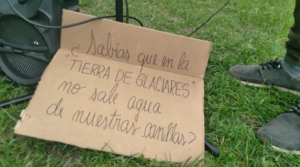 ¿Sabias que en la
"TIERRA DE GLACIARES"
no sale agua
de nuestras canillas?